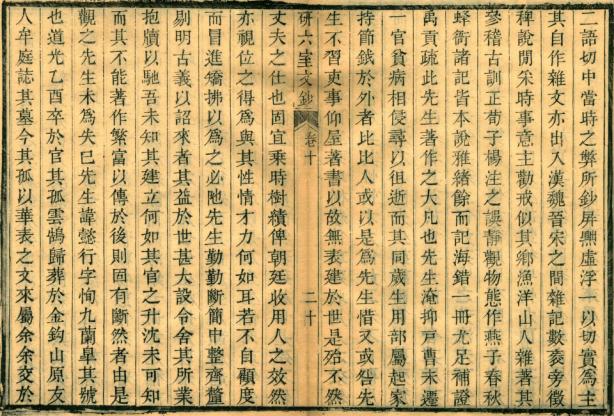 二語切中當時之弊所鈔屏黜虛浮一以切實爲主
其自作雜文亦出入漢魏晉宋之間雜記數袠旁徵
稗說閒朱時事意主勸戒似其鄉漁洋山人雜著其
參稽古訓正荀子楊注之誤靜觀物態作燕子春秋
蜂衙諸記皆本說雅緒餘而記海錯一冊尤足補證
禹貢疏此先生著作之大凡也先生淹抑戸曹未遷
一官貧病相侵尋以徂逝而其同歲生用部屬起家
持節鉞於外者比比人或以是爲先生惜又或咎先
生不習吏事仰屋著書以故無表建於世是殆不然
研六室文鈔 卷十 二十
丈夫之仕也固宜乗時樹績俾朝廷收用人之效然
亦視位之得爲與其性情才力何如耳若不自顧度
而冒進矯拂以爲之必虵先生勤勤斷簡中整齊釐
剔明古義以詔來者其益於世甚大設令舍其所業
抱牘以馳吾未知其建立何如其官之升沈未可知
而其不能著作繁富以傳於後則固有斷然者由是
觀之先生未爲失巳先生諱懿行字恂九蘭皐其號
也道光乙酉卒於官其孤雲鵠歸葬於金鈎山原友
人牟庭誌其墓今其孤以華表之文來屬余余交於